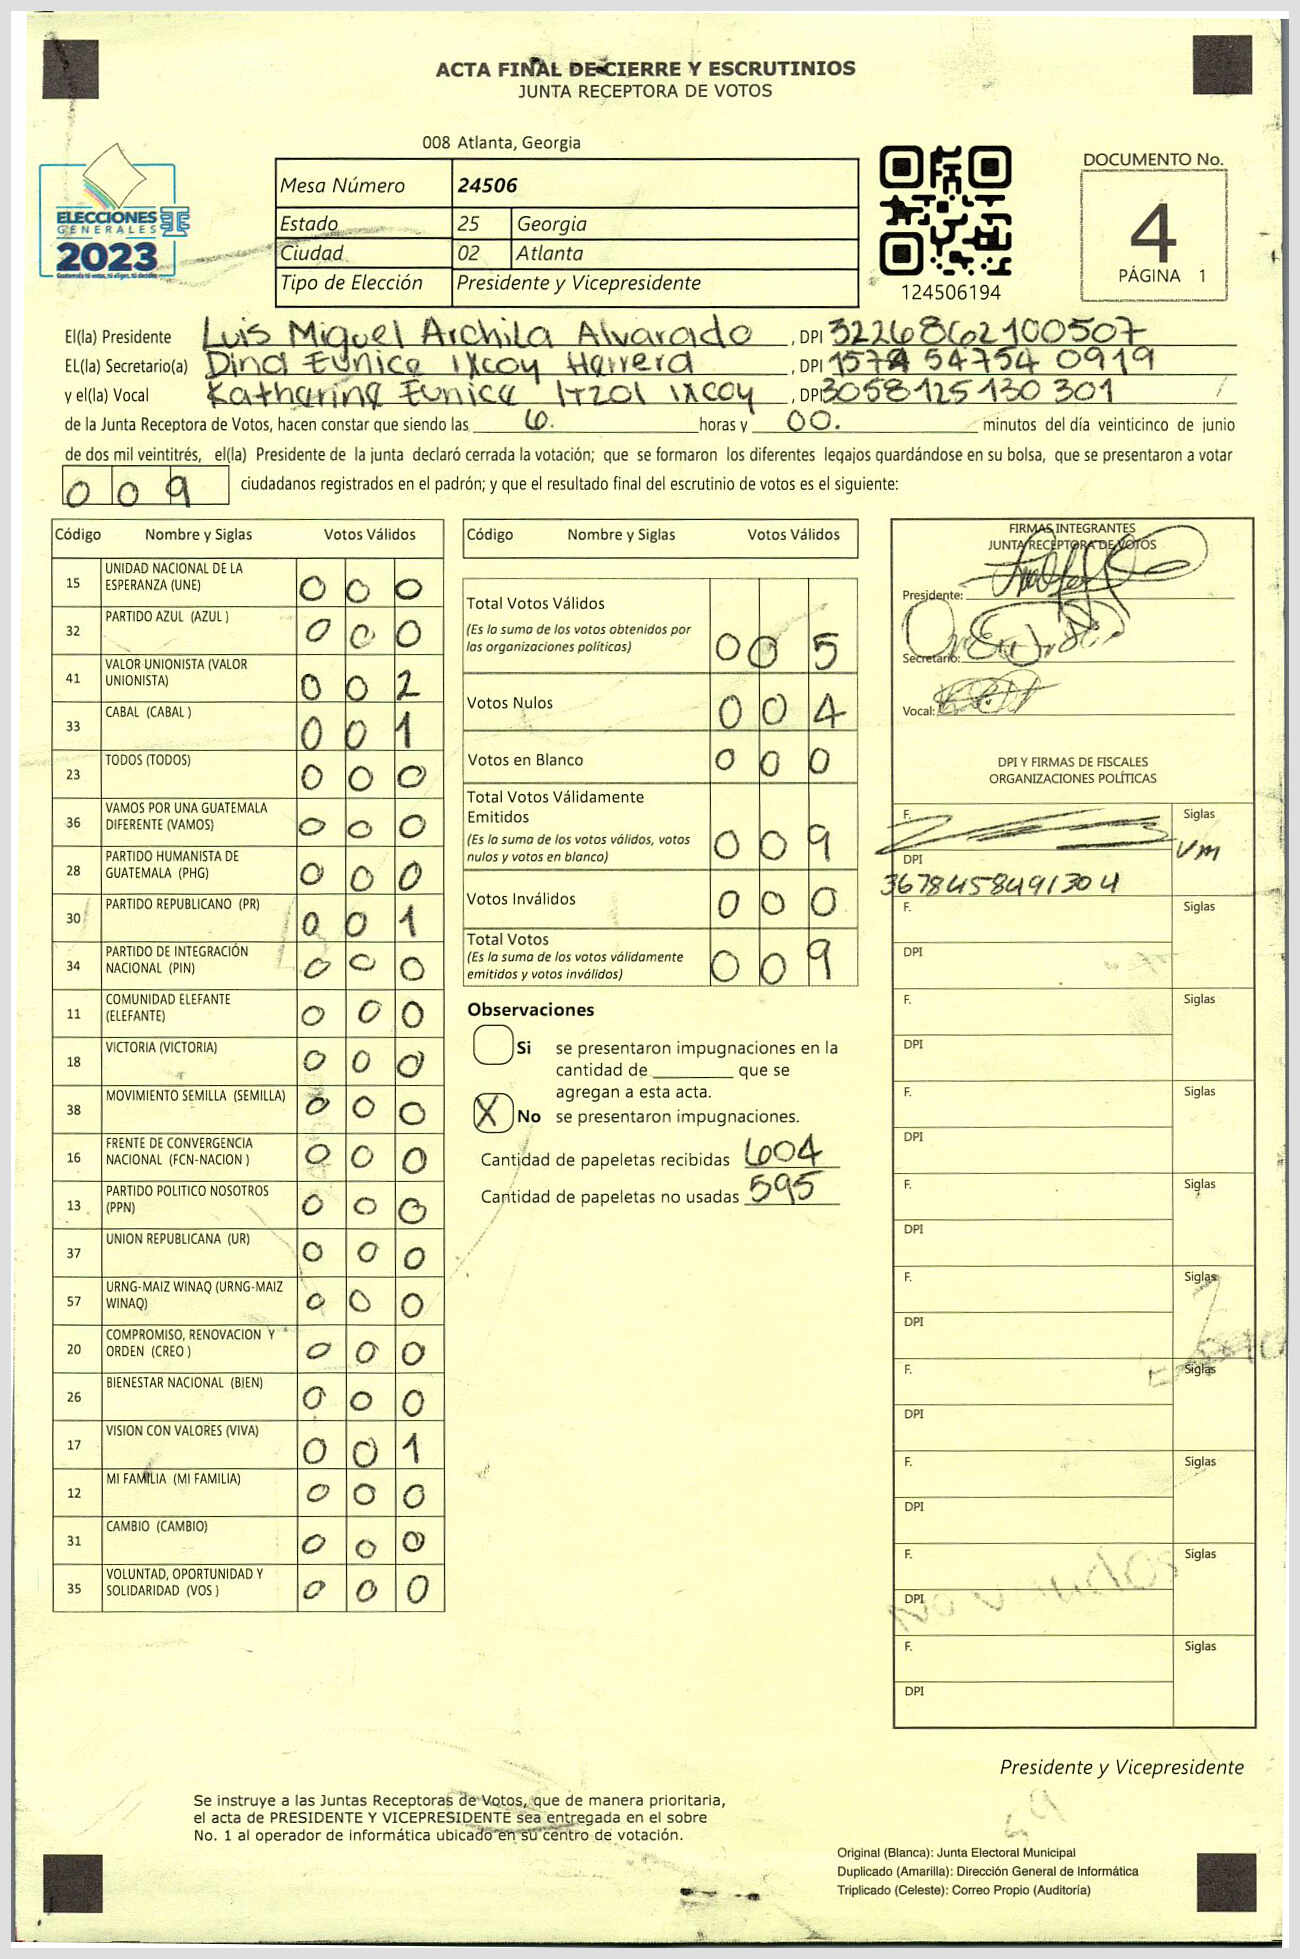 ACTA FINAL DE CIERRE Y ESCRUTINIOS
JUNTA RECEPTORA DE VOTOS
008 Atlanta, Georgia
ELECCIONES
GENERALES
2023
Mesa Número 24506
Estado 25 Georgia
Ciudad 02 Atlanta
Tipo de Elección Presidente y Vicepresidente
124506194
DOCUMENTO No.
4
PÁGINA 1
El(la) Presidente Luis Miguel Archila Alvarado , DPI 3226862100507
EL(la) Secretario(a) Dina Eunice Ixcoy Herrera , DPI 1574 54754 0919
y el(la) Vocal Katharina Eunice Itzol Ixcoy , DPI 3058125130301
de la Junta Receptora de Votos, hacen constar que siendo las 6. horas y 00. minutos del día veinticinco de junio
de dos mil veintitrés, el(la) Presidente de la junta declaró cerrada la votación; que se formaron los diferentes legajos guardándose en su bolsa, que se presentaron a votar
0 0 9 ciudadanos registrados en el padrón; y que el resultado final del escrutinio de votos es el siguiente:
Código Nombre y Siglas Votos Válidos
15 UNIDAD NACIONAL DE LA ESPERANZA (UNE) 0 0 0
32 PARTIDO AZUL (AZUL ) 0 0 0
41 VALOR UNIONISTA (VALOR UNIONISTA) 0 0 2
33 CABAL (CABAL ) 0 0 1
23 TODOS (TODOS) 0 0 0
36 VAMOS POR UNA GUATEMALA DIFERENTE (VAMOS) 0 0 0
28 PARTIDO HUMANISTA DE GUATEMALA (PHG) 0 0 0
30 PARTIDO REPUBLICANO (PR) 0 0 1
34 PARTIDO DE INTEGRACIÓN NACIONAL (PIN) 0 0 0
11 COMUNIDAD ELEFANTE (ELEFANTE) 0 0 0
18 VICTORIA (VICTORIA) 0 0 0
38 MOVIMIENTO SEMILLA (SEMILLA) 0 0 0
16 FRENTE DE CONVERGENCIA NACIONAL (FCN-NACION ) 0 0 0
13 PARTIDO POLITICO NOSOTROS (PPN) 0 0 0
37 UNION REPUBLICANA (UR) 0 0 0
57 URNG-MAIZ WINAQ (URNG-MAIZ WINAQ) 0 0 0
20 COMPROMISO, RENOVACION Y ORDEN (CREO ) 0 0 0
26 BIENESTAR NACIONAL (BIEN) 0 0 0
17 VISION CON VALORES (VIVA) 0 0 1
12 MI FAMILIA (MI FAMILIA) 0 0 0
31 CAMBIO (CAMBIO) 0 0 0
35 VOLUNTAD, OPORTUNIDAD Y SOLIDARIDAD (VOS ) 0 0 0
Código Nombre y Siglas Votos Válidos
Total Votos Válidos 0 0 5
(Es la suma de los votos obtenidos por
las organizaciones políticas)
Votos Nulos 0 0 4
Votos en Blanco 0 0 0
Total Votos Válidamente
Emitidos 0 0 9
(Es la suma de los votos válidos, votos
nulos y votos en blanco)
Votos Inválidos 0 0 0
Total Votos 0 0 9
(Es la suma de los votos válidamente
emitidos y votos inválidos)
Observaciones
Si se presentaron impugnaciones en la
cantidad de ________ que se
agregan a esta acta.
X No se presentaron impugnaciones.
Cantidad de papeletas recibidas 604
Cantidad de papeletas no usadas 595
FIRMAS INTEGRANTES
JUNTA RECEPTORA DE VOTOS
Presidente:
Secretario:
Vocal:
DPI Y FIRMAS DE FISCALES
ORGANIZACIONES POLÍTICAS
F. Siglas
VM
DPI
3678458491304
F. Siglas
DPI
F. Siglas
DPI
F. Siglas
DPI
F. Siglas
DPI
F. Siglas
DPI
F. Siglas
DPI
F. Siglas
DPI
F. Siglas
DPI
F. Siglas
DPI
Presidente y Vicepresidente
Se instruye a las Juntas Receptoras de Votos, que de manera prioritaria,
el acta de PRESIDENTE Y VICEPRESIDENTE sea entregada en el sobre
No. 1 al operador de informática ubicado en su centro de votación.
Original (Blanca): Junta Electoral Municipal
Duplicado (Amarilla): Dirección General de Informática
Triplicado (Celeste): Correo Propio (Auditoría)